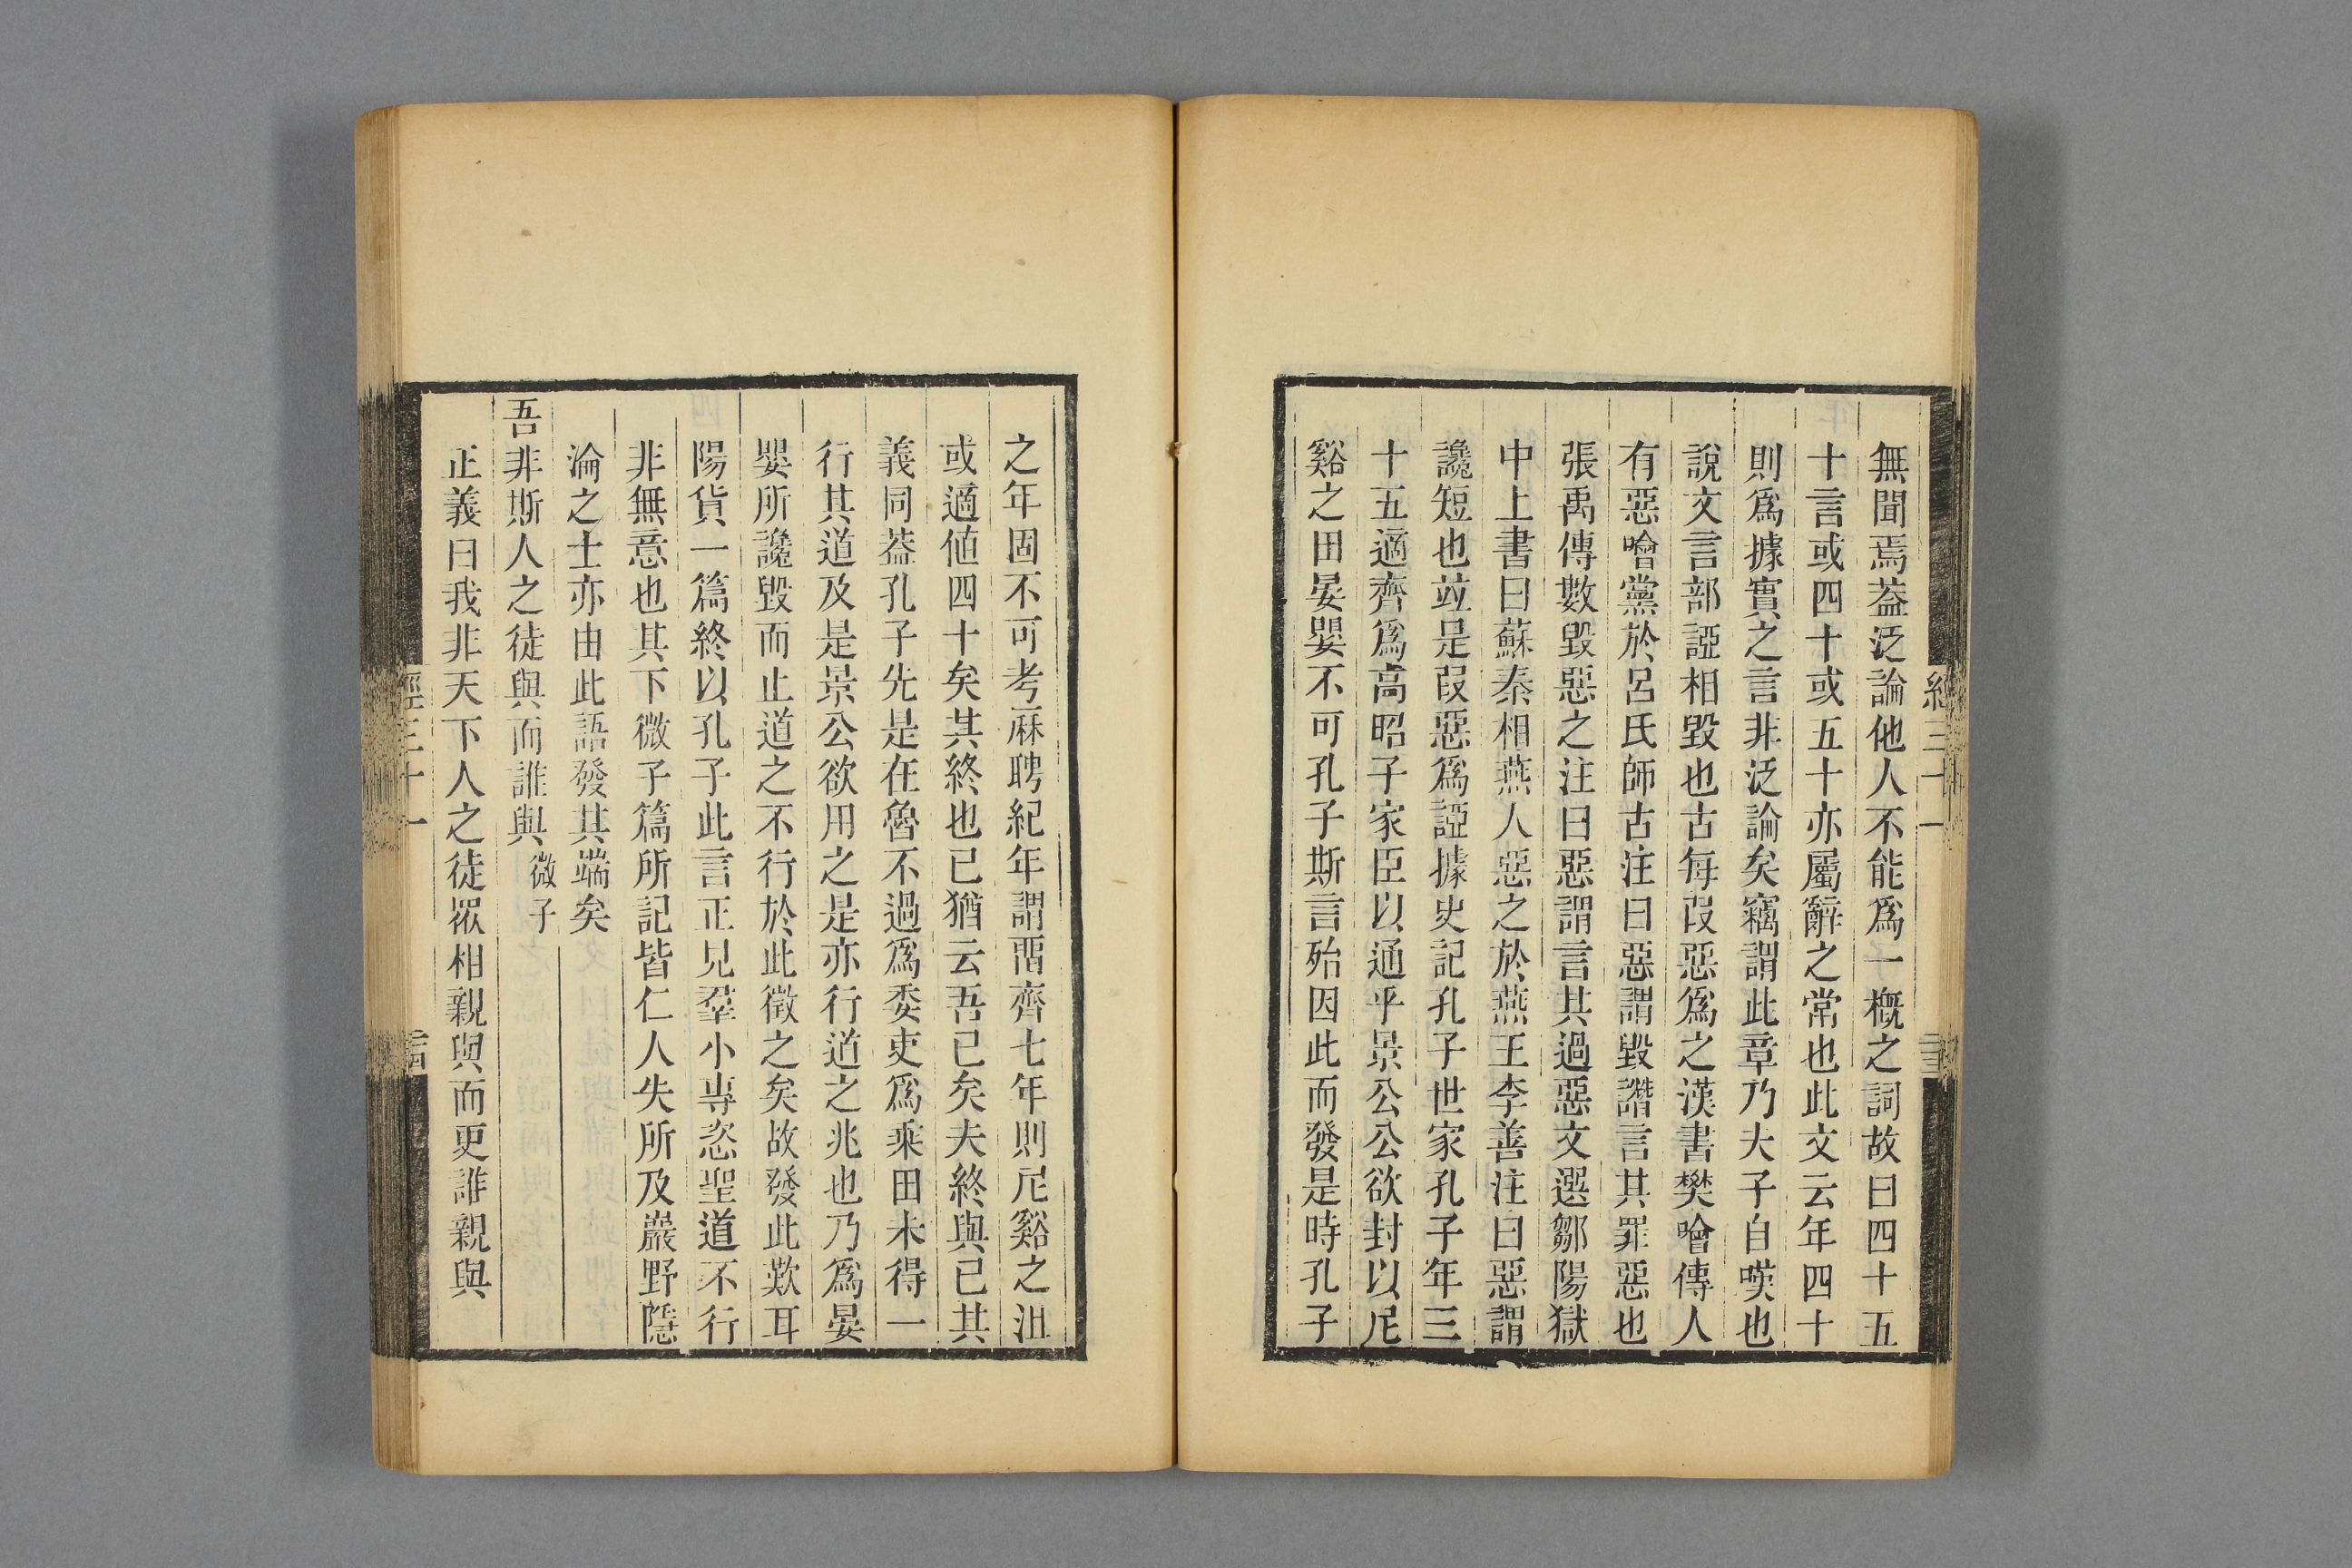 無聞焉葢泛論他人不能爲一槪之詞故曰四十五
十言或四十或五十亦屬辭之常也此文云年四十
則爲據實之言非泛論矣竊謂此章乃夫子自嘆也
說文言部䛩相毀也古每叚惡爲之漢書樊噲傳人
有惡噲黨於呂氏師古注曰惡謂毀譖言其罪惡也
張禹傳數毀惡之注曰惡謂言其過惡文選鄒陽獄
中上書曰蘇秦相燕人惡之於燕王李善注曰惡謂
讒短也竝是叚惡爲䛩據史記孔子世家孔子年三
十五適齊爲高昭子家臣以通乎景公公欲封以尼
谿之田晏嬰不可孔子斯言殆因此而發是時孔子
之年固不可考庥聘紀年謂畱齊七年則尼谿之沮
或適値四十矣其終也已猶云吾已矣夫終與已其
義同葢孔子先是在魯不過爲委吏爲乘田未得一
行其道及是景公欲用之是亦行道之兆也乃爲晏
嬰所讒毀而止道之不行於此徵之矣故發此歎耳
陽貨一篇終以孔子此言正見羣小專恣聖道不行
非無意也其下微子篇所記皆仁人失所及巖野隱
淪之士亦由此語發其端矣
吾非斯人之徒與而誰與 微子
正義曰我非天下人之徒眾相親與而更誰親與
經三十一